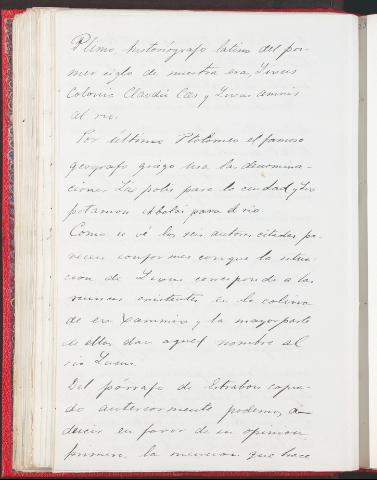 Plinio historiógrafo latino del pri-
mer siglo de nuestra era, Lixus
Colonia Claudii Cæs y Lixus amnis
al rio.
Por último Ptolomeo el famoso
geografo griego usa las denomina-
ciones Lix polis para la ciudad y Lix
potamou para el rio.
Como se vé los seis autores citados pa-
recen conformes con que la situa-
cion de Lixus corresponde a las
ruinas existentes en la colina
de en y la mayor parte
de ellos dan aquel nombre al
rio Lucus.
Del párrafo de Estrabon copia-
do anteriormente podemos de-
ducir en favor de su opinion
primero la mencion que hace